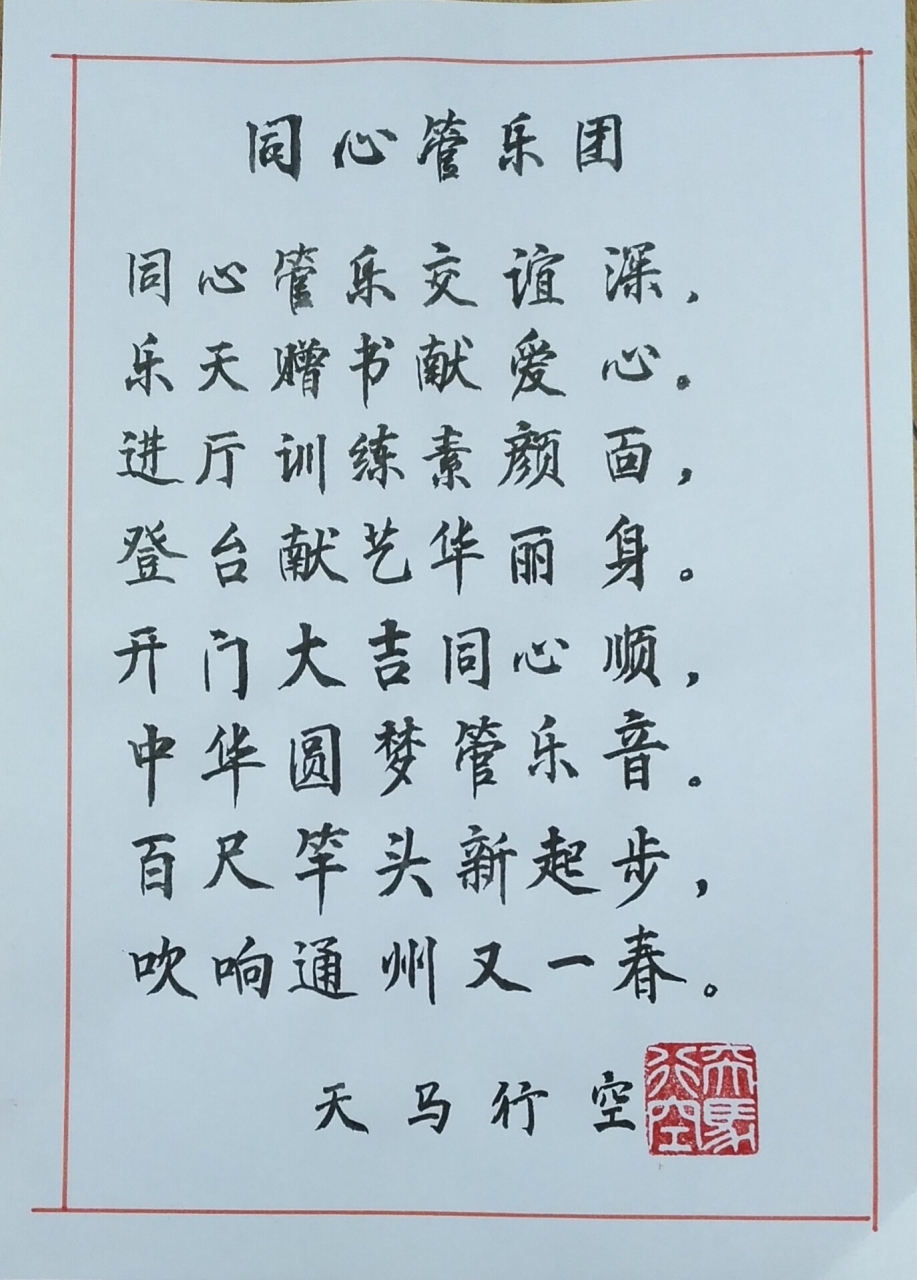 同心管乐团
同心管乐交谊深，
乐天赠书献爱心。
进厅训练素颜面，
登台献艺华丽身。
开门大吉同心顺，
中华圆梦管乐音。
百尺竿头新起步，
吹响通州又一春。
天马行空
天马行空